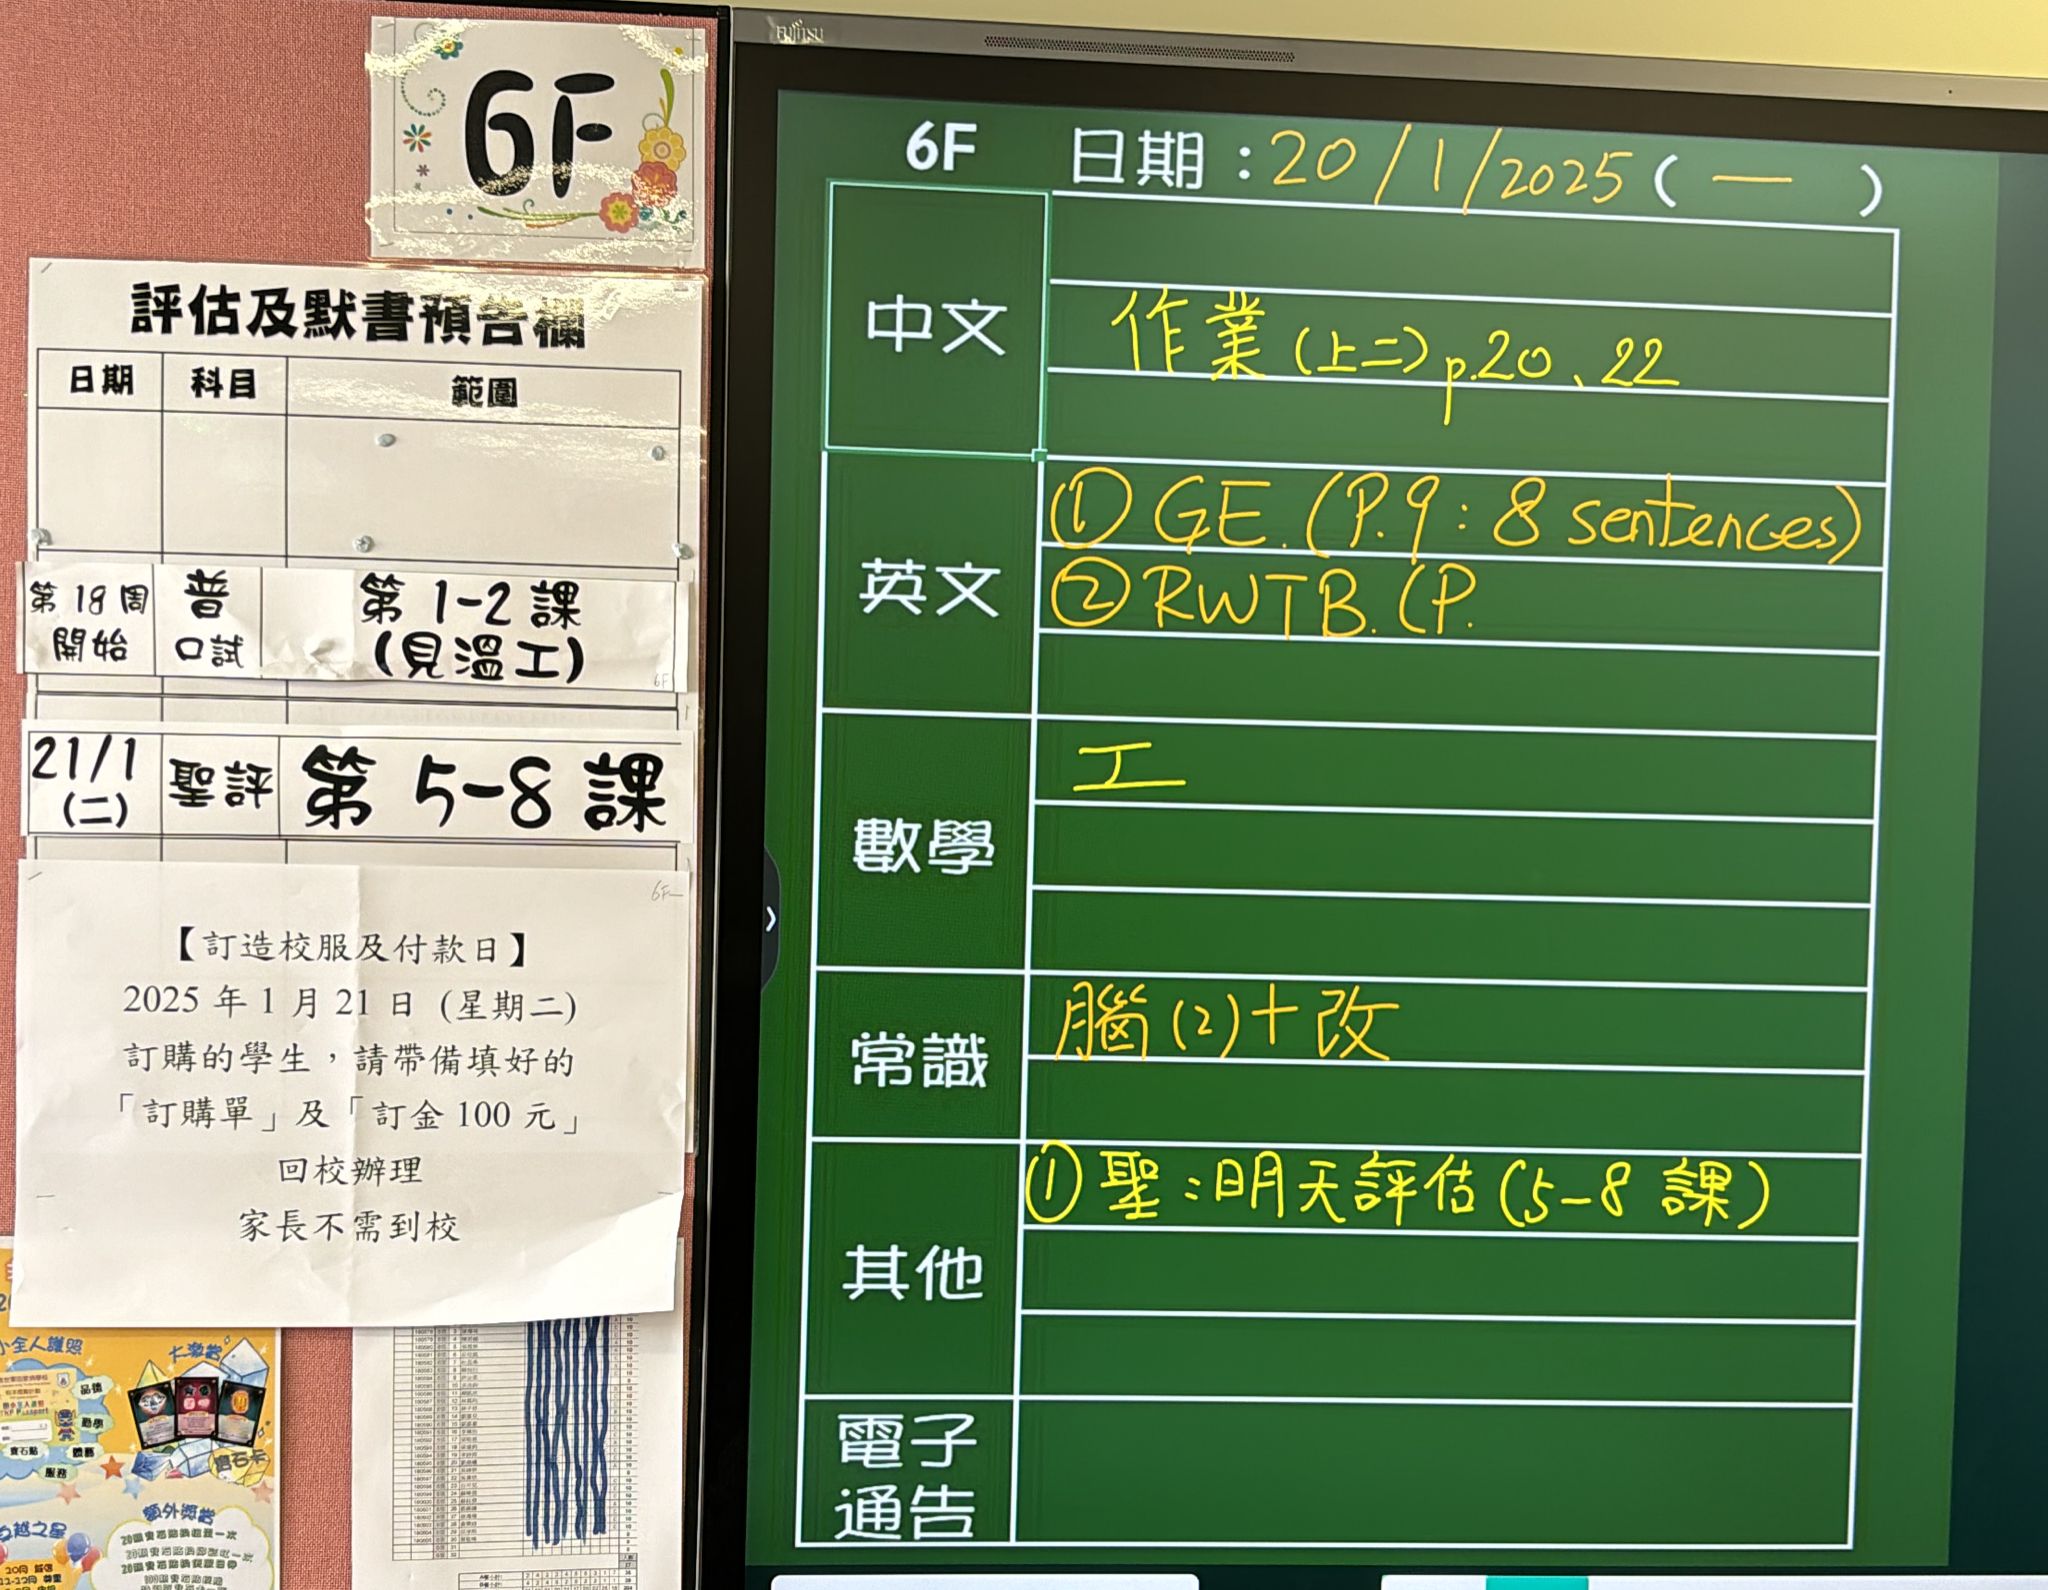 6F
評估及默書預告欄
日期 科目 範圍
第18周 開始 普 口試 第1-2課 (見溫工)
6F
21/1 (二) 聖評 第5-8課
6F
【訂造校服及付款日】
2025年1月21日 (星期二)
訂購的學生，請帶備填好的
「訂購單」及「訂金100元」
回校辦理
家長不需到校
小全人護照
品德
勤學
寶石點
服務
寶石卡
額外獎賞
FUJITSU
6F 日期：20/1/2025(一)
中文
作業(上二)p.20、22
英文
① GE.(P.9:8 sentences)
② RWTB.(P.
數學
工
常識
腦(2)+改
其他
① 聖：明天評估(5-8課)
電子
通告